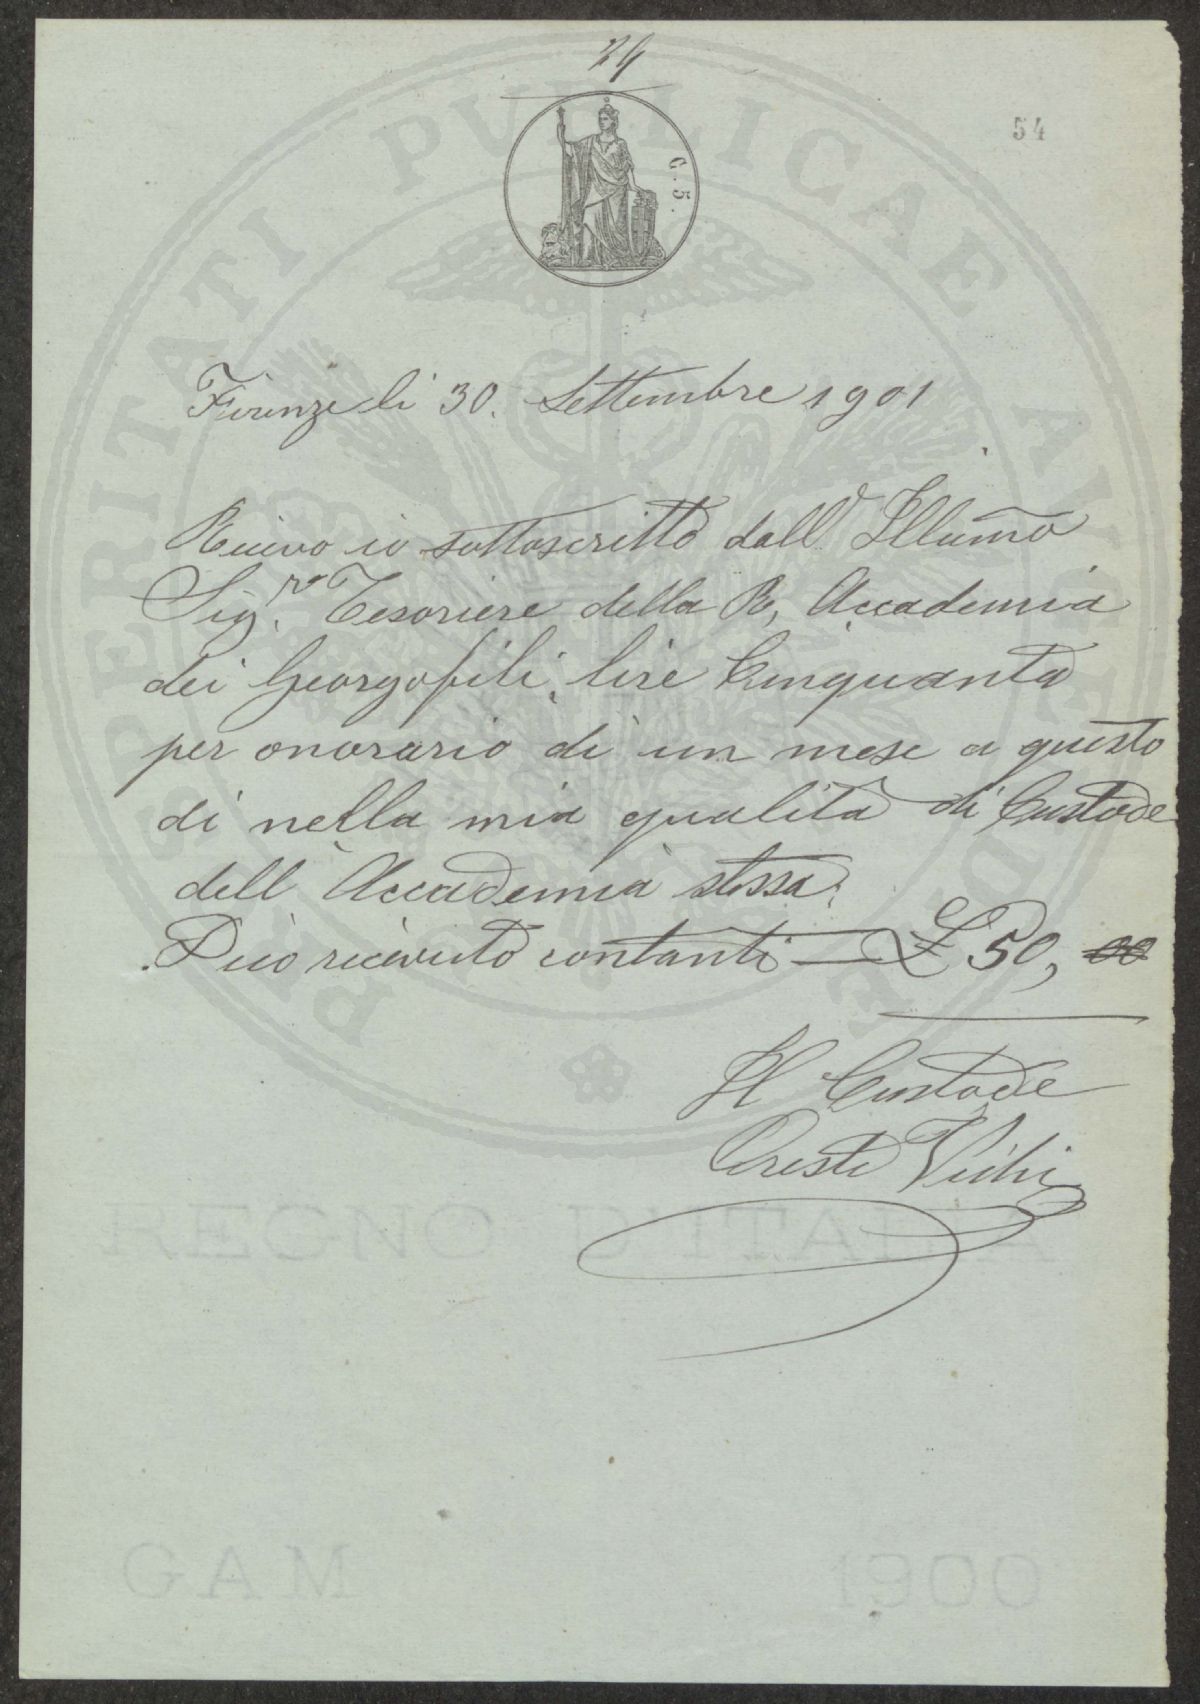 24
54
C. 5.
PROSPERITATI PUBLICAE AUGENDAE
Firenze li 30. Settembre 1901
Ricevo io sottoscritto dall' Illũmo
Sig.re Tesoriere della R, Accademia
dei Georgofili, lire Cinquanta
per onorario di un mese a questo
di nella mia qualità di Custode
dell Accademia stessa.
Dico ricevuto contanti — £ 50, 00
Il Custode
Oreste
REGNO D'ITALIA
GAM 1900